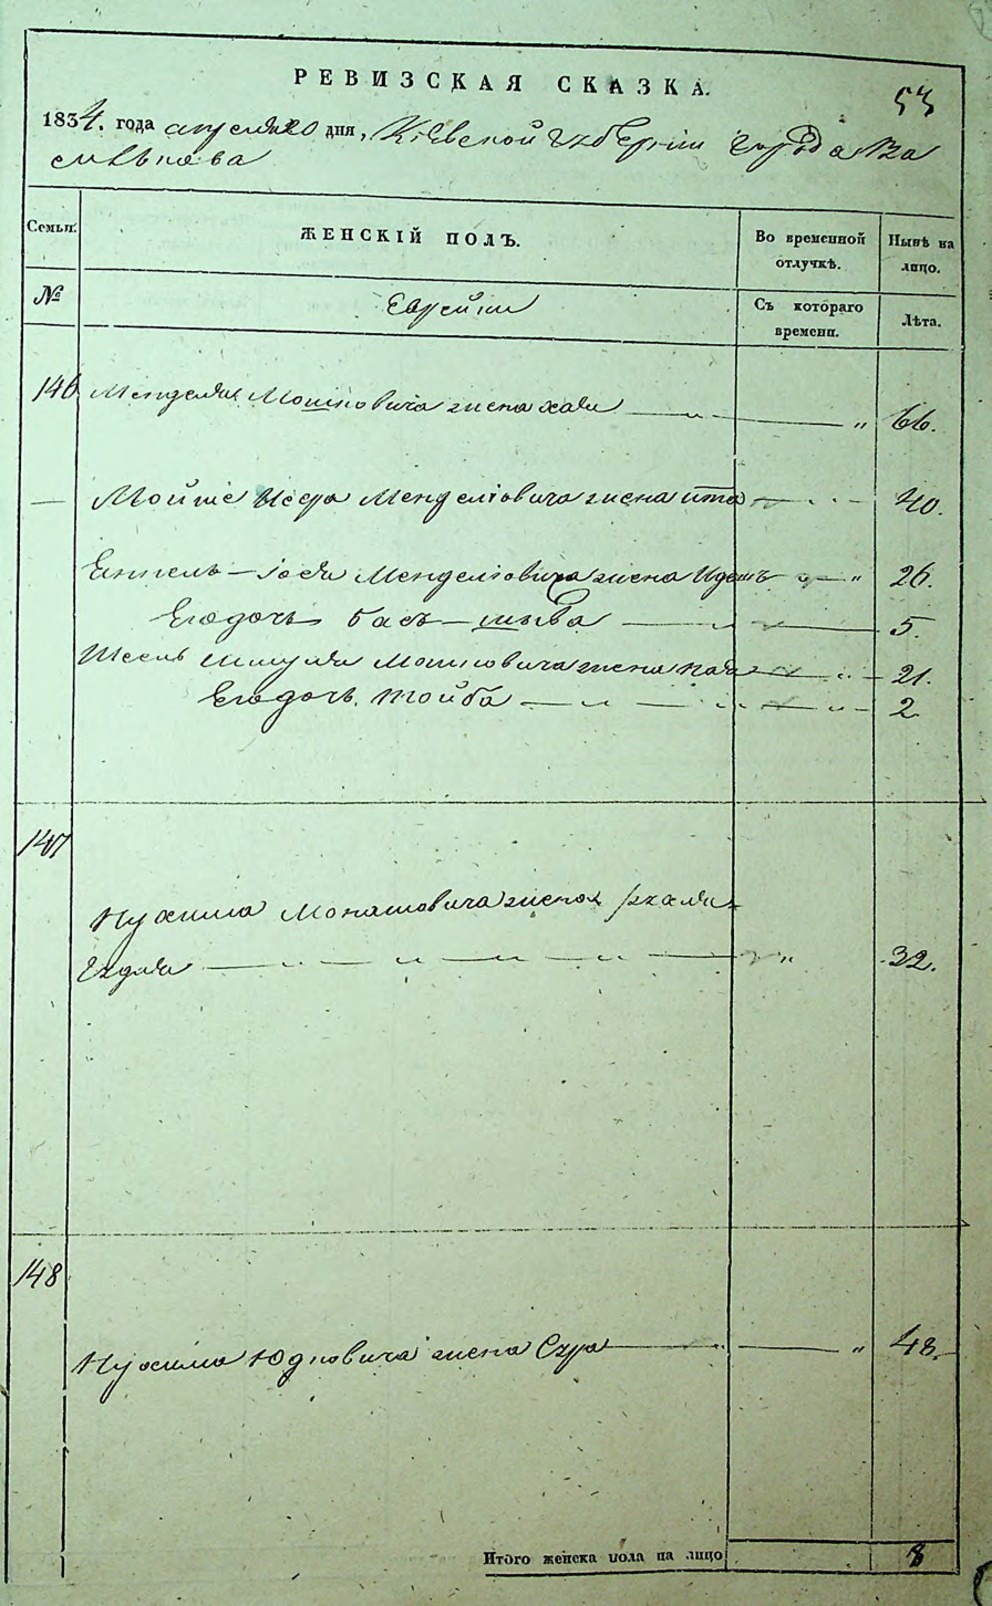 РЕВИЗСКАЯ СКАЗКА.
53
1834. года апреля 20 дня, Кіевской губерніи города Ва
сылькова
Семьи.
ЖЕНСКІЙ ПОЛЪ.
Во временной отлучкѣ.
Нынѣ на лицо.
№
Еврейки
Съ котораго времени.
Лѣта.
146 Менделя Мошковича жена хая — " 66.
— Мойше Иссра Менделіовича жена ита — 40.
Енкель — Іосля Менделіовича жена Идесъ — " 26.
Его дочь Басъ — шыва — 5.
Шмуля Мошковича жена — 21.
Его дочь Тойба — 2
147
Нухима Монашовича жена рхаля
Гудля — " 32.
148
Нухима Юдковича жена Сура — " 48.
Итого женска пола на лицо 8